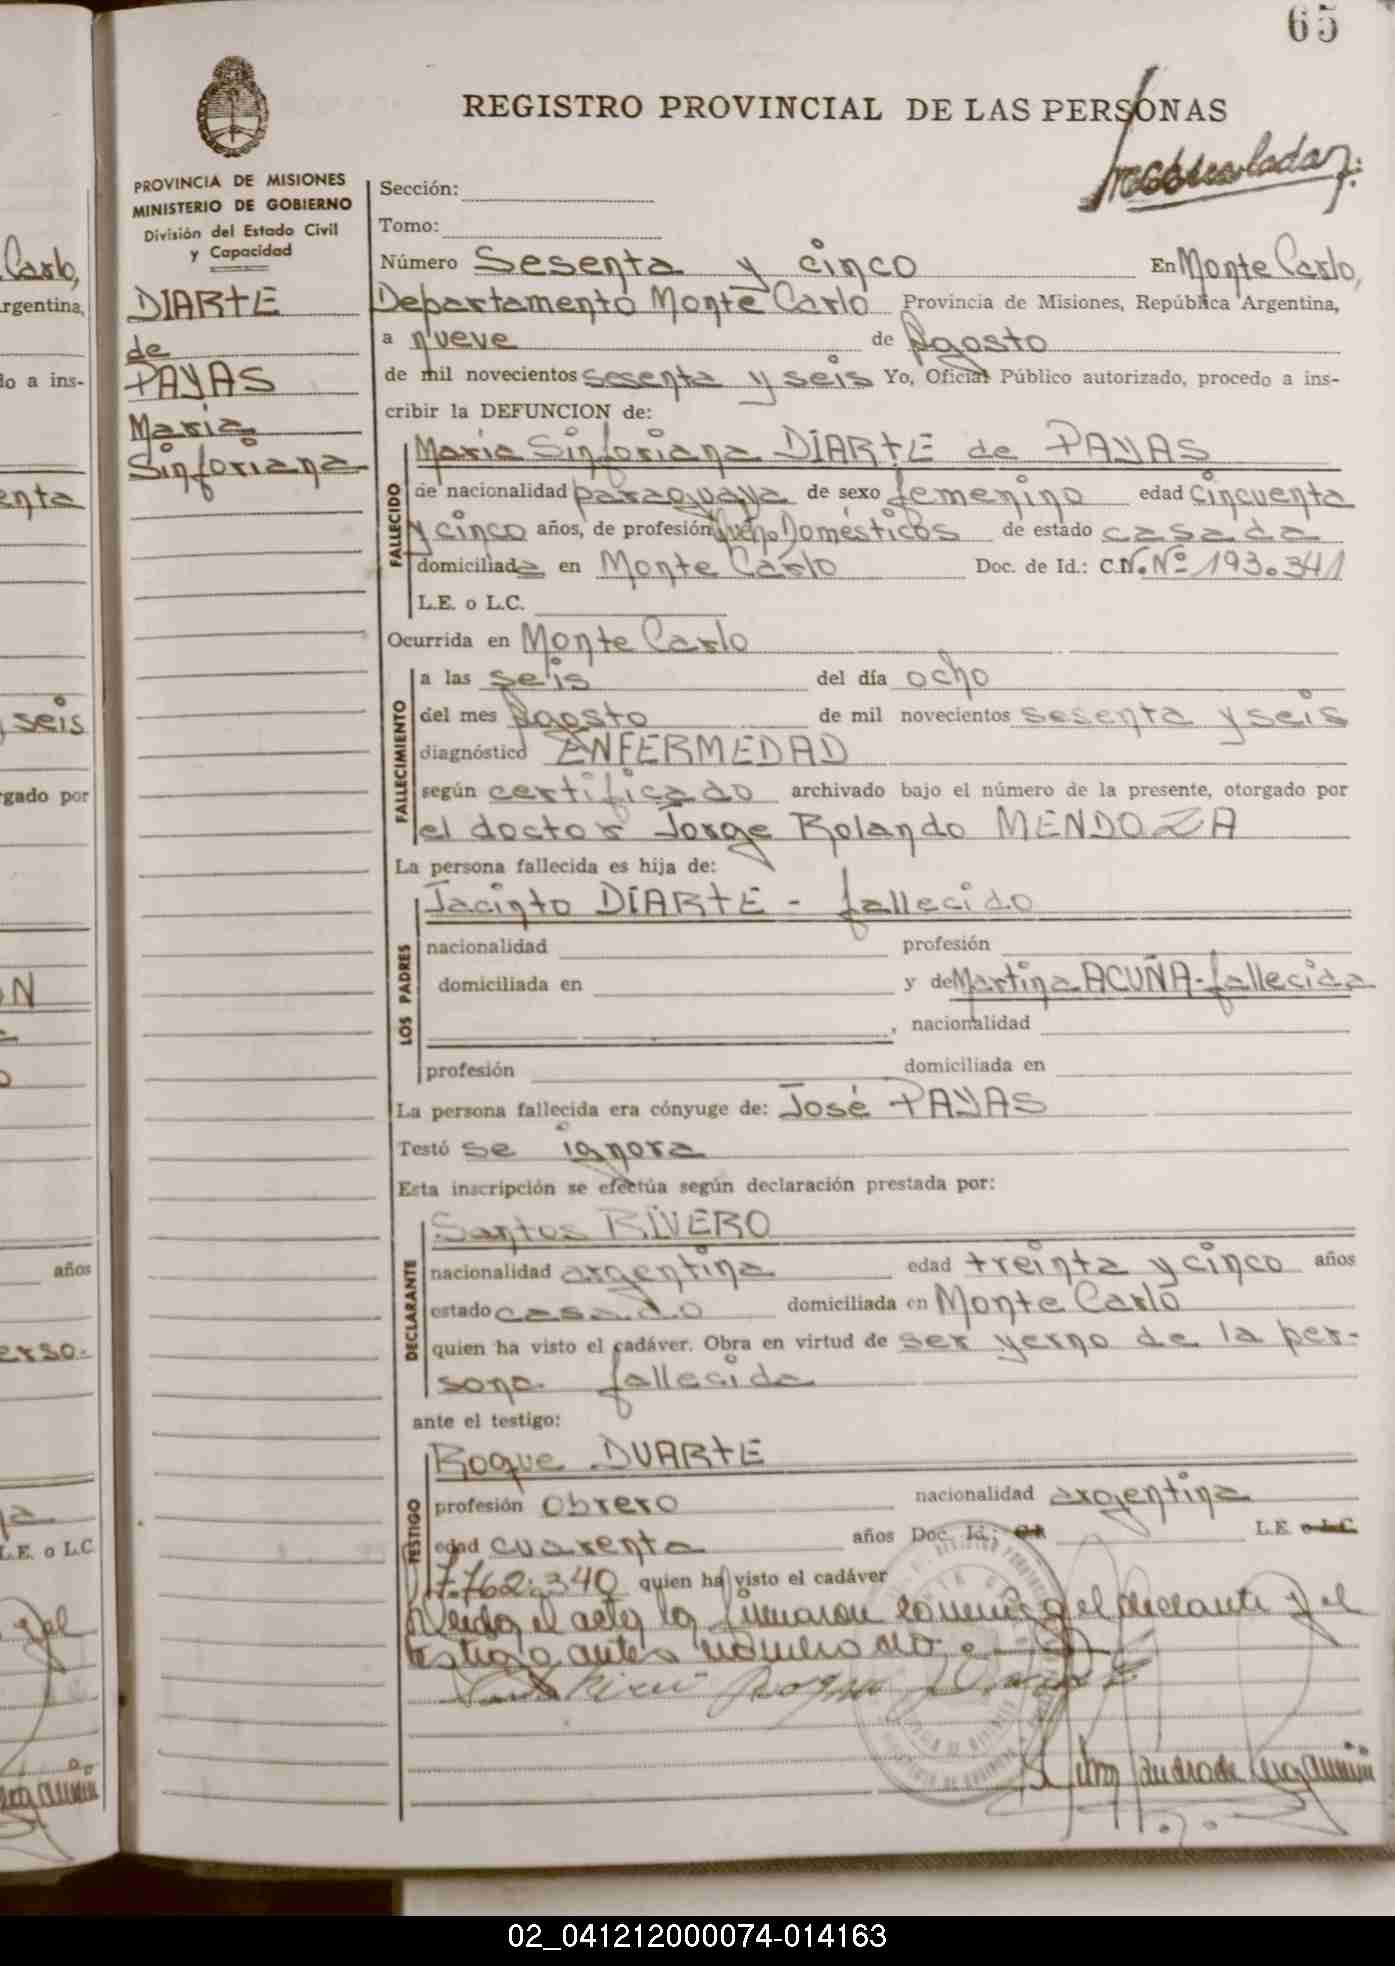 65
REGISTRO PROVINCIAL DE LAS PERSONAS
PROVINCIA DE MISIONES
MINISTERIO DE GOBIERNO
División del Estado Civil
y Capacidad
DIARTE
de
PAYAS
Maria
Sinforiana
Sección:
Tomo:
Número Sesenta y cinco En Monte Carlo,
Departamento Monte Carlo Provincia de Misiones, República Argentina,
a nueve de Agosto
de mil novecientos sesenta y seis Yo, Oficial Público autorizado, procedo a ins-
cribir la DEFUNCION de:
FALLECIDO
Maria Sinforiana DIARTE de PAYAS
de nacionalidad paraguaya de sexo femenino edad Cincuenta
y cinco años, de profesión Domésticos de estado casada
domiciliada en Monte Carlo Doc. de Id.: C.N. Nº 193.341
L.E. o L.C.
Ocurrida en Monte Carlo
FALLECIMIENTO
a las seis del día ocho
del mes Agosto de mil novecientos sesenta y seis
diagnóstico ENFERMEDAD
según certificado archivado bajo el número de la presente, otorgado por
el doctor Jorge Rolando MENDOZA
La persona fallecida es hija de:
LOS PADRES
Jacinto DIARTE - fallecido
nacionalidad profesión
domiciliada en y de Martina ACUÑA-fallecida
, nacionalidad
profesión domiciliada en
La persona fallecida era cónyuge de: José PAYAS
Testó se ignora
Esta inscripción se efectúa según declaración prestada por:
DECLARANTE
Santos RIVERO
nacionalidad argentina edad treinta y cinco años
estado casado domiciliada en Monte Carlo
quien ha visto el cadáver. Obra en virtud de ser yerno de la per-
sona fallecida
ante el testigo:
TESTIGO
Roque DUARTE
profesión obrero nacionalidad argentina
edad cuarenta años Doc. Id.: L.E. o L.C.
7.762.340 quien ha visto el cadáver
Leida el acta la firmaron conmigo el declarante y el
testigo antes nombrado
02_041212000074-014163